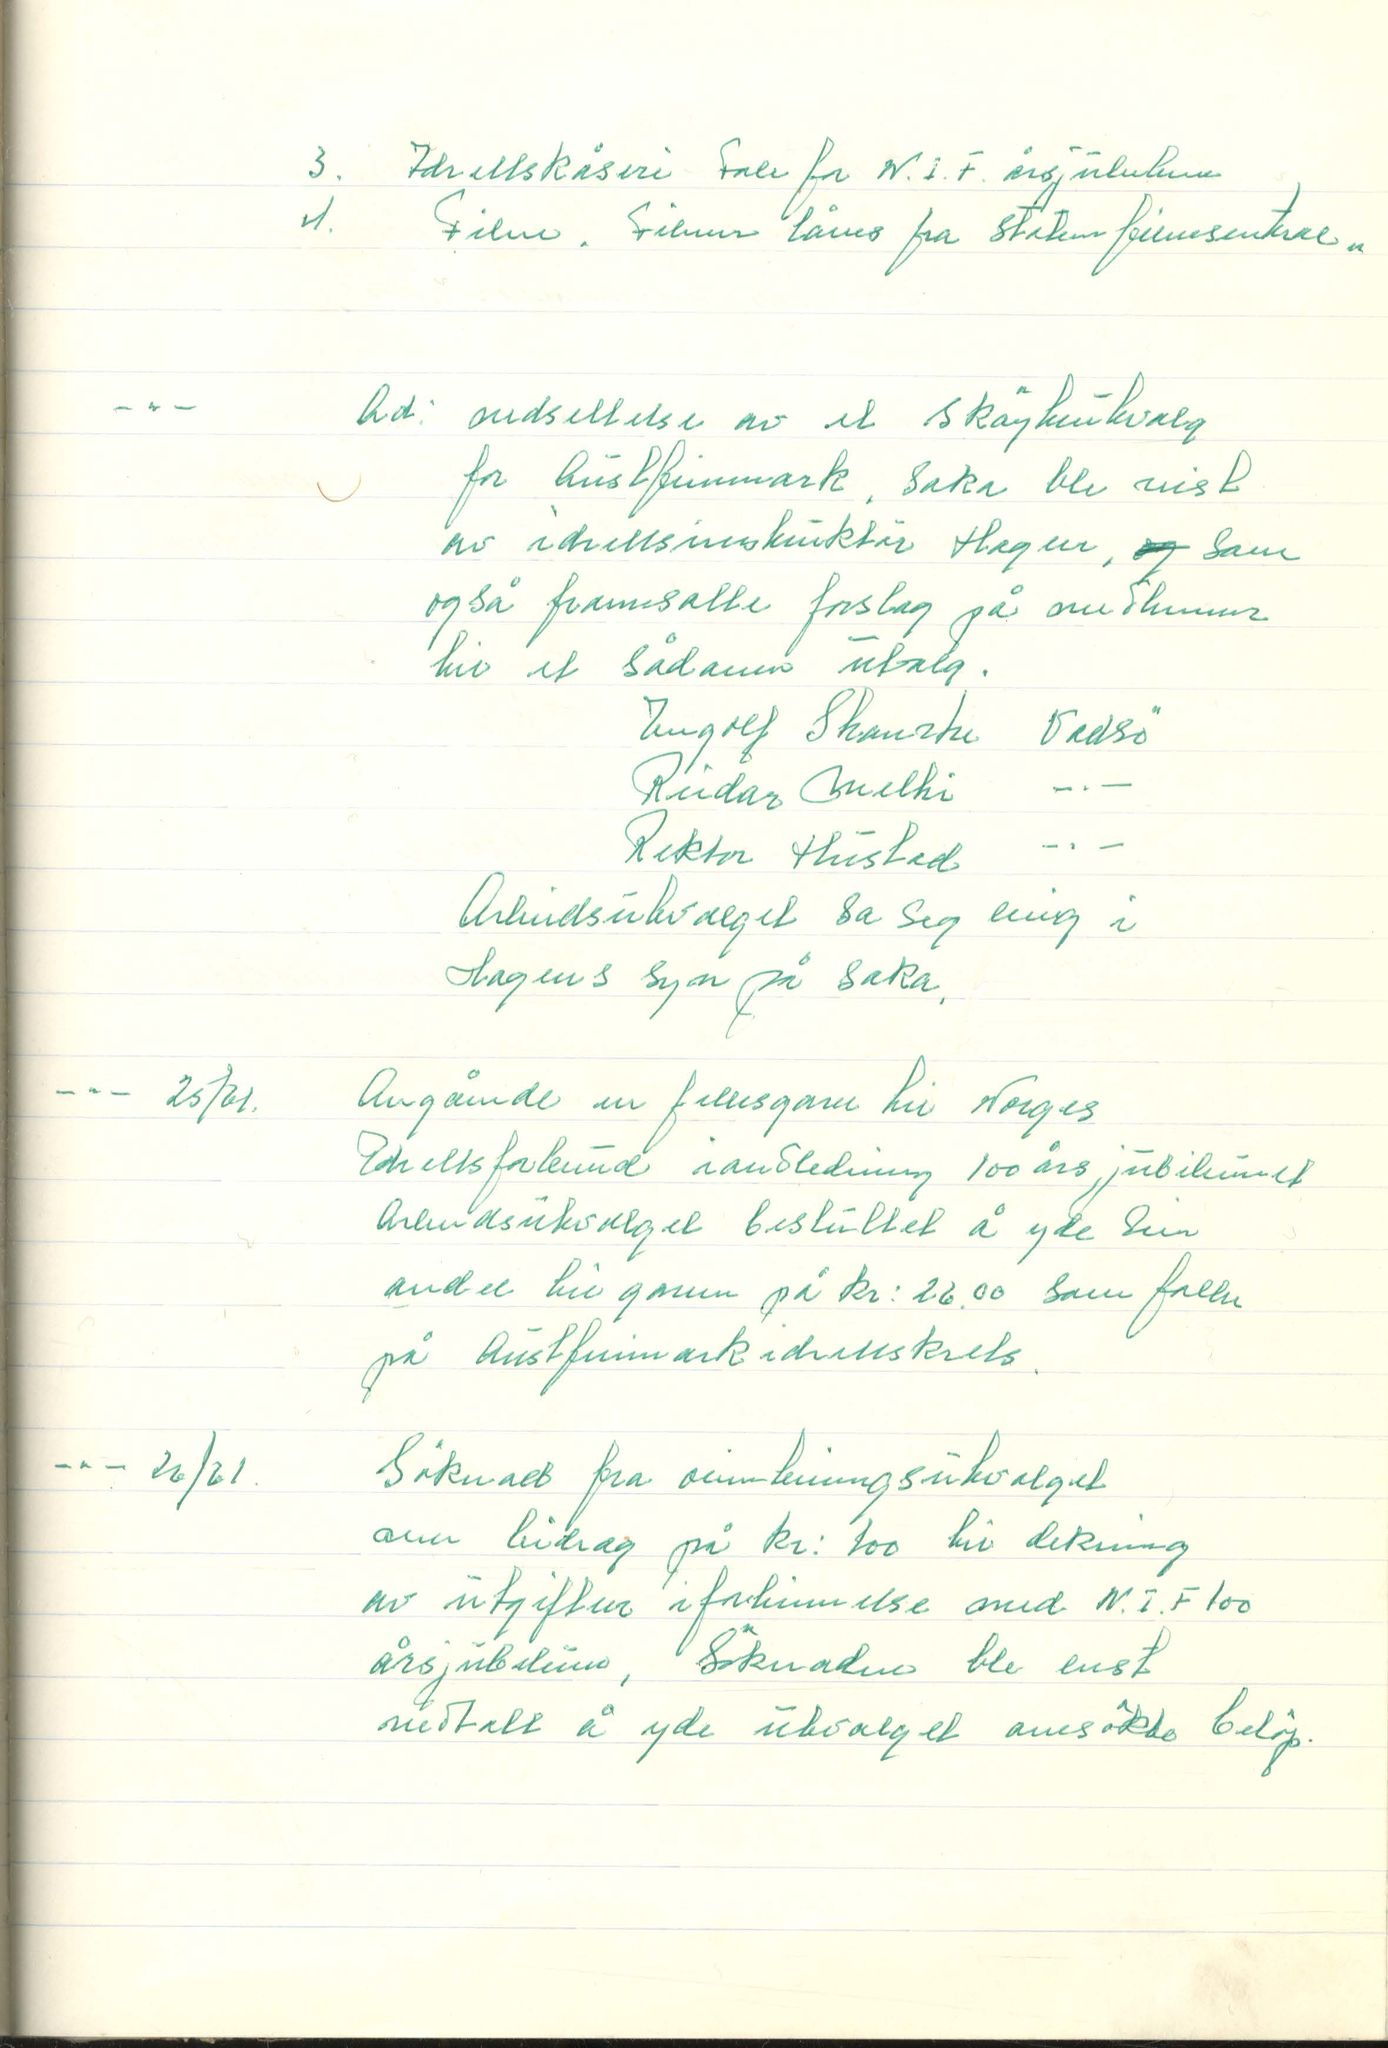 3. Idrettskåseri Tale for N.I.F. årsjubileum
4. Film. Filmer lånes fra statens filmsentral.
-"- Ad: nedsettelse av et skøyteutvalg
for Austfinnmark, saka ble reist
av idrettsinstruktør Hagen, som
også framsatte forslag på medlemmer
til et sådann utvalg.
Ingolf Skanche Vadsö
Reidar Melhi -"-
Rektor Hustad -"-
Arbeidsutvalget sa seg enig i
Hagens syn på saka.
-"- 25/61. Angående en fellesgave til Norges
Idrettsforbund i anledning 100 årsjubileumet
Arbeidsutvalget besluttet å yde sin
andel til gaven på kr: 26.00 som faller
på Austfinnmark idrettskrets.
-"- 26/61. Söknad fra orienteringsutvalget
om bidrag på kr: 100 til dekning
av utgifter i forbinnelse med N.I.F 100
årsjubileum, Söknaden ble enst
vedtatt å yde utvalget ansökte belöp.